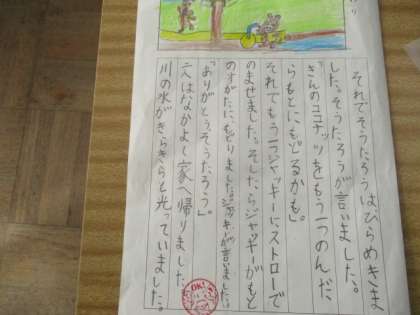 それでそうたろうはひらめきま
した。そうたろうが言いました。
「きんのココナッツをもう一つのんだ、
らもとにもどるかも。」
それでもう一つジャッキーにストローで
のませました。そしたらジャッキーがもと
のすがたに、もどりました。ジャッキーが言いました。
「ありがとう、そうたろう」。
二人はなかよく家へ帰りました
川の水がきらきらと光っていました。
OK!